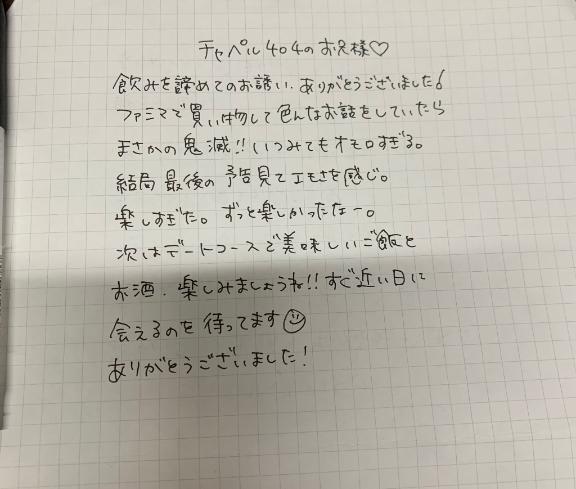 チャペル404のお兄様♡
飲みを諦めてのお誘い、ありがとうございました!
ファミマで買い物して色んなお話をしていたら
まさかの鬼滅!!いつみてもオモロすぎる。
結局最後の予告見てエモさを感じ。
楽しすぎた。ずっと楽しかったなー。
次はデートコースで美味しいご飯と
お酒、楽しみましょうね!!すぐ近い日に
会えるのを待ってます☺
ありがとうございました!